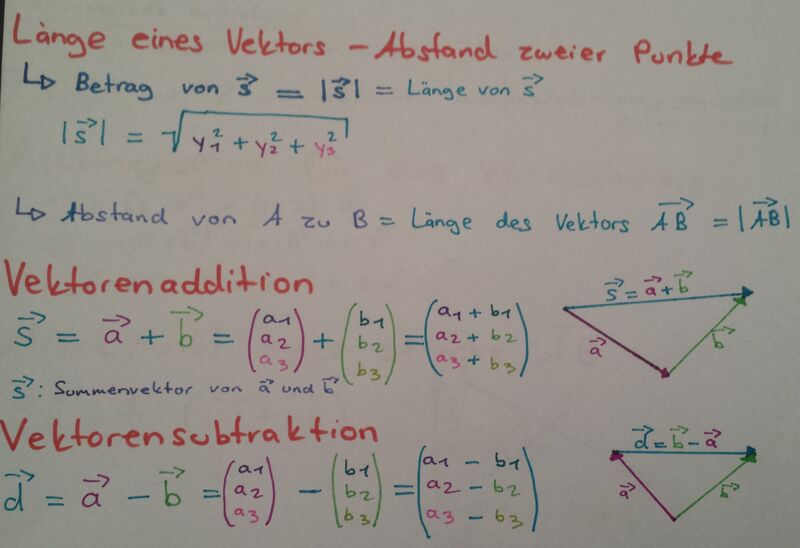 Länge eines Vektors – Abstand zweier Punkte
↳ Betrag von s⃗ = |s⃗| = Länge von s⃗
|s⃗| = √(y₁² + y₂² + y₃²)
↳ Abstand von A zu B = Länge des Vektors AB⃗ = |AB⃗|
Vektorenaddition
s⃗ = a⃗ + b⃗ = (a₁ a₂ a₃) + (b₁ b₂ b₃) = (a₁ + b₁ a₂ + b₂ a₃ + b₃)
s⃗ = a⃗ + b⃗
a⃗
b⃗
s⃗: Summenvektor von a⃗ und b⃗
Vektorensubtraktion
d⃗ = a⃗ – b⃗ = (a₁ a₂ a₃) – (b₁ b₂ b₃) = (a₁ – b₁ a₂ – b₂ a₃ – b₃)
d⃗ = b⃗ – a⃗
a⃗
b⃗